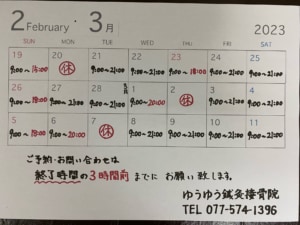 2 February 3月 2023
SUN MON TUE WED THU FRI SAT
19 20 21 22 23 24 25
9:00~15:00 休 9:00~21:00 9:00~21:00 9:00~18:00 9:00~21:00 9:00~21:00
26 27 28 1 2 3 4
9:00~18:00 9:00~21:00 9:00~21:00 9:00~20:00 休 9:00~21:00 9:00~21:00
5 6 7 8 9 10 11
9:00~18:00 9:00~20:00 休 9:00~21:00 9:00~21:00 9:00~21:00 9:00~21:00
ご予約・お問い合わせは
終了時間の3時間前までにお願い致します。
ゆうゆう鍼灸接骨院
TEL 077-574-1396